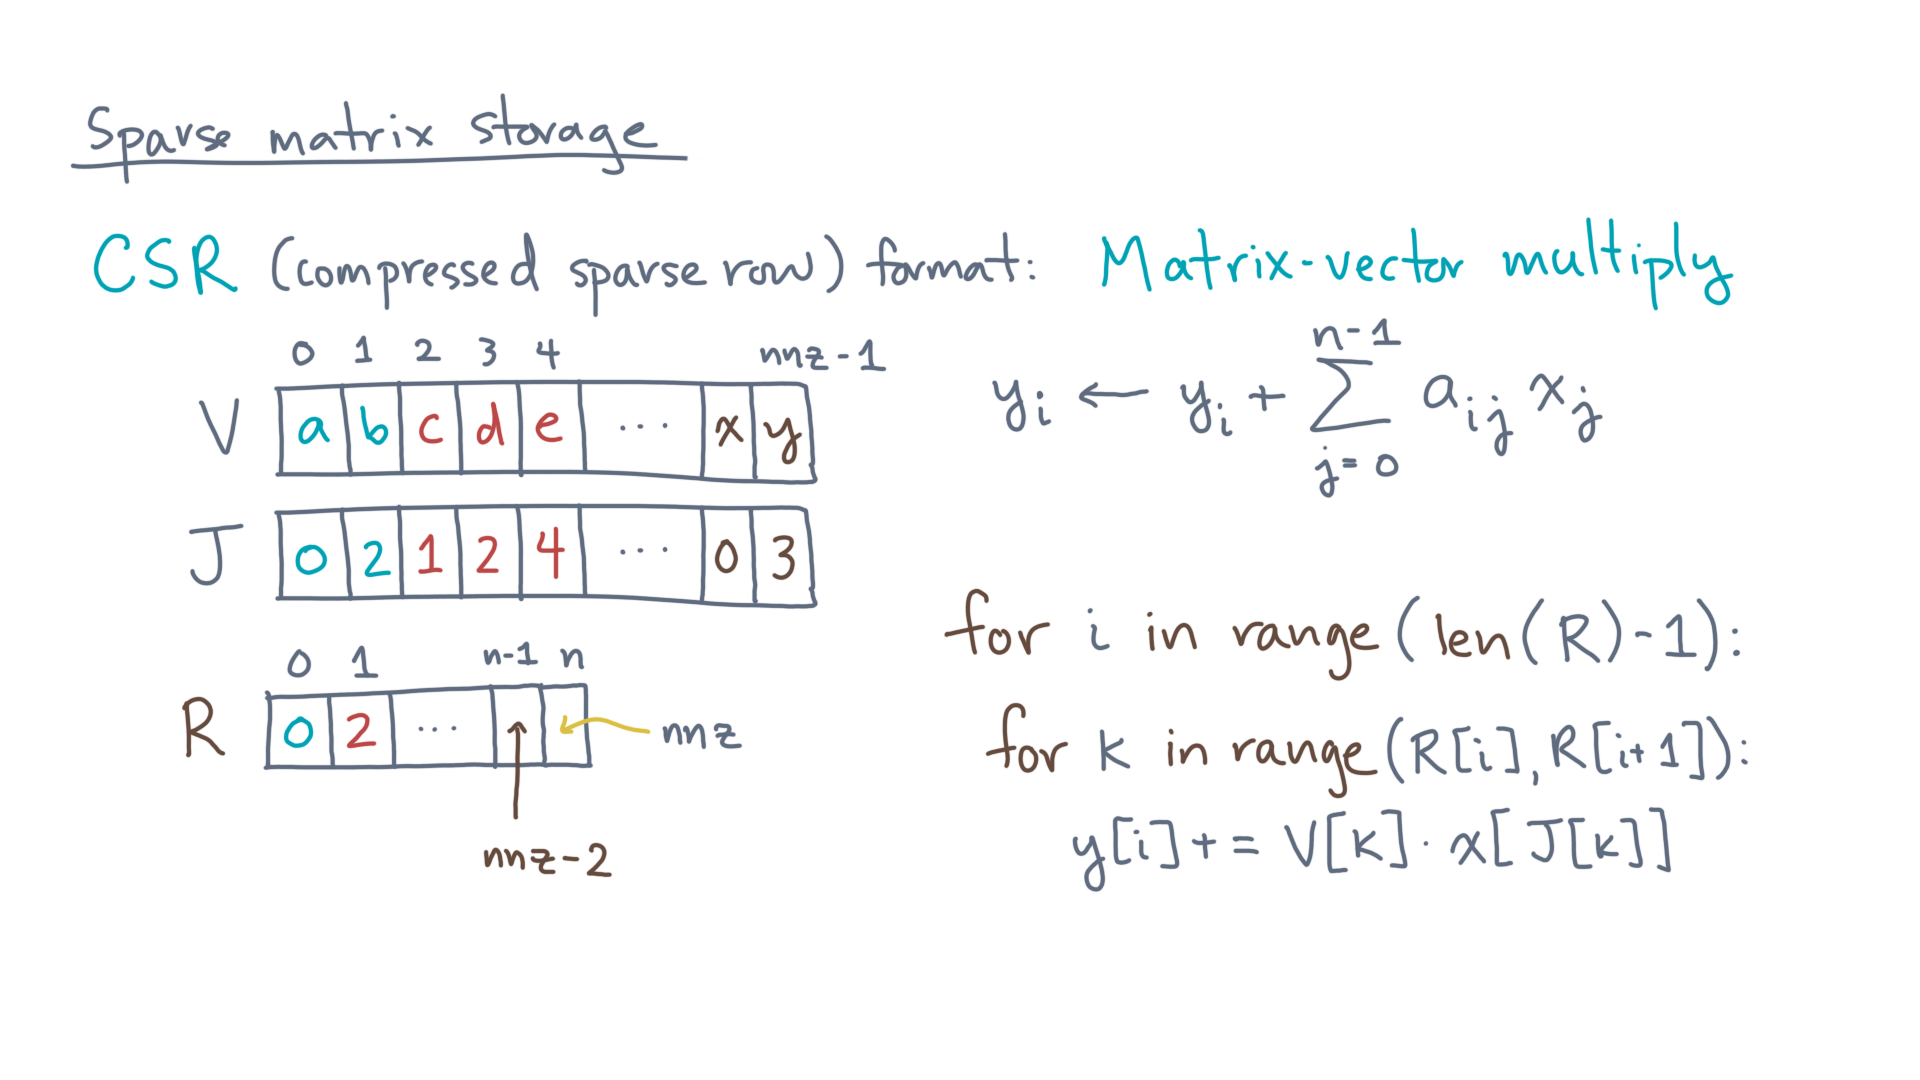 Sparse matrix storage
CSR (compressed sparse row) format: Matrix-vector multiply
0 1 2 3 4 nnz-1
V a b c d e ... x y
J 0 2 1 2 4 ... 0 3
0 1 n-1 n
R 0 2 ... nnz
nnz-2
n-1
yᵢ ← yᵢ + Σ aᵢⱼ xⱼ
j=0
for i in range(len(R)-1):
for k in range(R[i], R[i+1]):
y[i] += V[k] · x[J[k]]